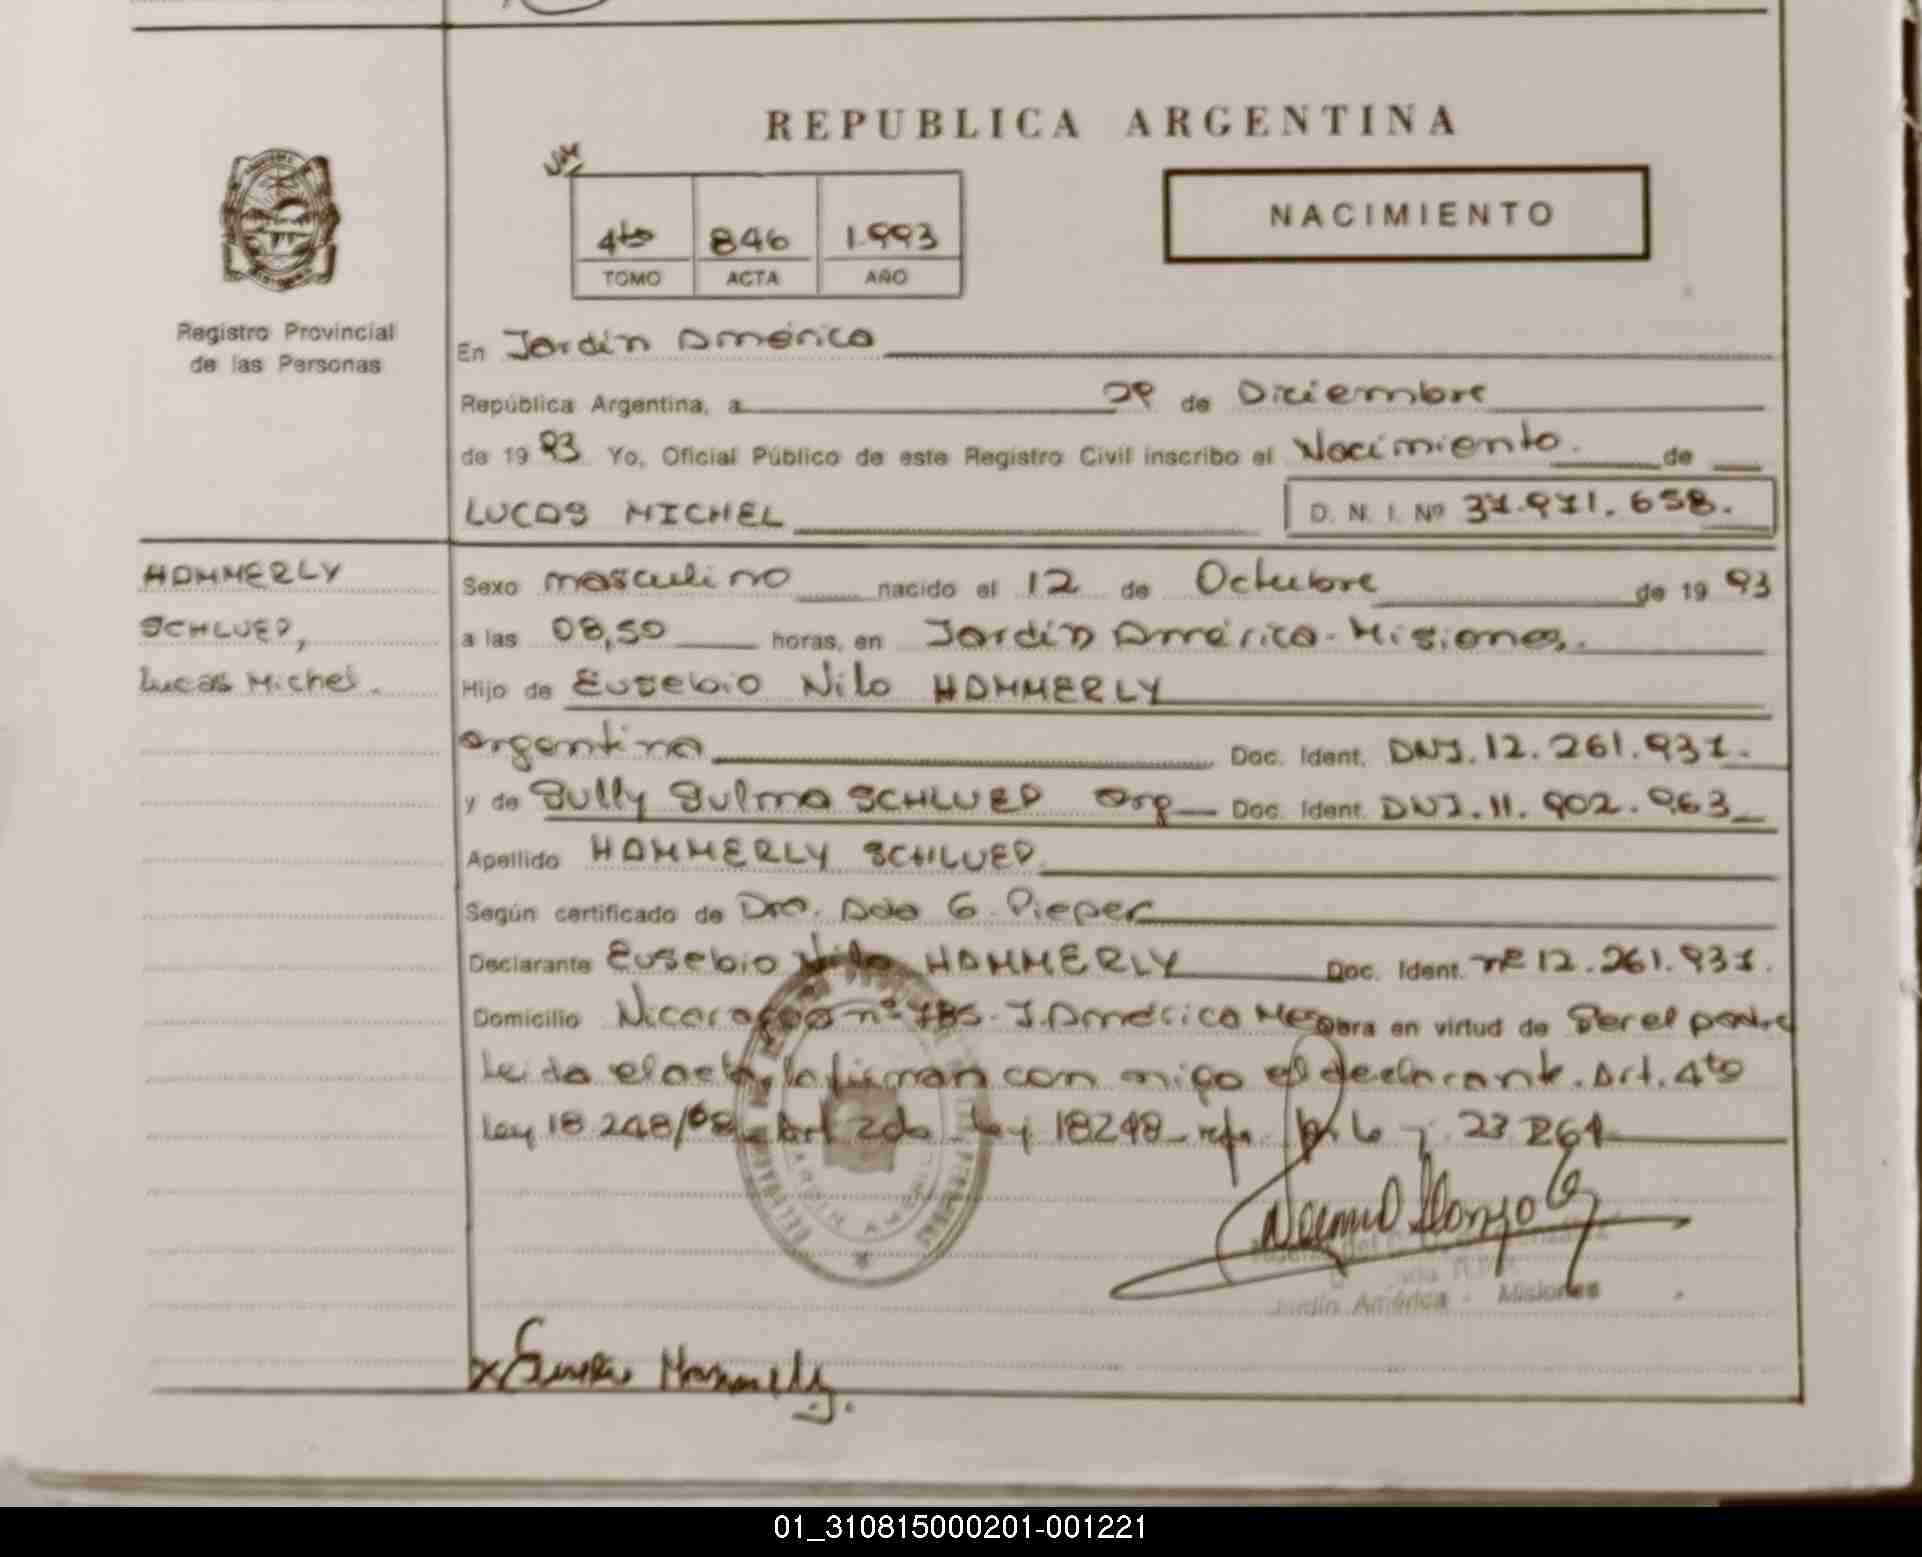 REPUBLICA ARGENTINA
NACIMIENTO
4to 846 1.993
TOMO ACTA AÑO
Registro Provincial
de las Personas
En Jardín América
República Argentina, a 29 de Diciembre
de 1993 Yo, Oficial Público de este Registro Civil inscribo el Nacimiento. de
LUCAS MICHEL D. N. I. Nº 37.971.658.
HAMMERLY
SCHLUEP,
Lucas Michel.
Sexo masculino nacido el 12 de Octubre de 1993
a las 08,50 horas, en Jardín América - Misiones.
Hijo de Eusebio Nilo HAMMERLY
argentina Doc. Ident. DNI. 12.261.937.
y de Sully Sulma SCHLUEP arg Doc. Ident. DNI. 11.902.963
Apellido HAMMERLY SCHLUEP
Según certificado de Dra. Ada G. Pieper
Declarante Eusebio Nilo HAMMERLY Doc. Ident. nº 12.261.937.
Domicilio Nicaragua nº 785. J. América Mes Obra en virtud de Ser el padre
Leida el acta, la firman con migo el declarante. Art. 4to
Ley 18.248/68 Art 2do Ley 18248 23264
JARDIN AMERICA
Jardín América - Misiones
Hammerly.
01_310815000201-001221